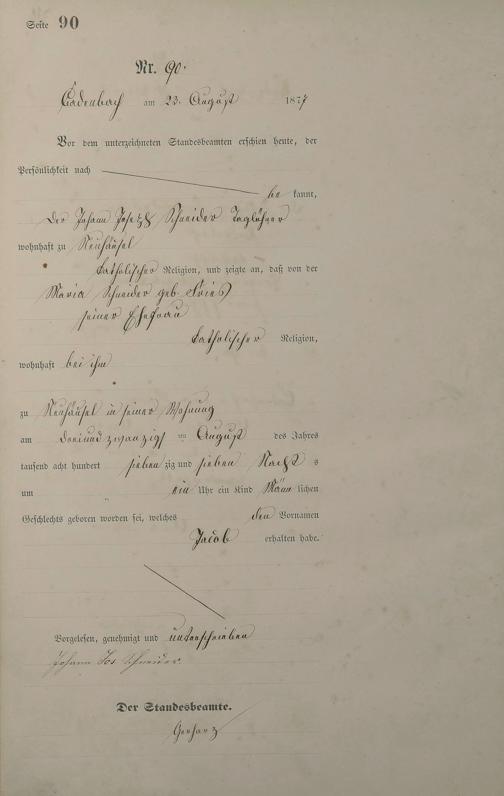 Seite 90
Nr. 90.
Cadenbach am 23. August 1877
Vor dem unterzeichneten Standesbeamten erschien heute, der
Persönlichkeit nach
be kannt,
der Johann Joseph Schneider Taglöhner
wohnhaft zu Neuhäusel
katholischer Religion, und zeigte an, daß von der
Maria Schneider geb. Fries
seiner Ehefrau
katholischer Religion,
wohnhaft bei ihm
zu Neuhäusel in seiner Wohnung
am dreiundzwanzigs ten August des Jahres
tausend acht hundert sieben zig und sieben Nacht s
um ein Uhr ein Kind Männ lichen
Geschlechts geboren worden sei, welches den Vornamen
Jacob erhalten habe.
Vorgelesen, genehmigt und unterschrieben
Johann Jos Schneider.
Der Standesbeamte.
Gerharz